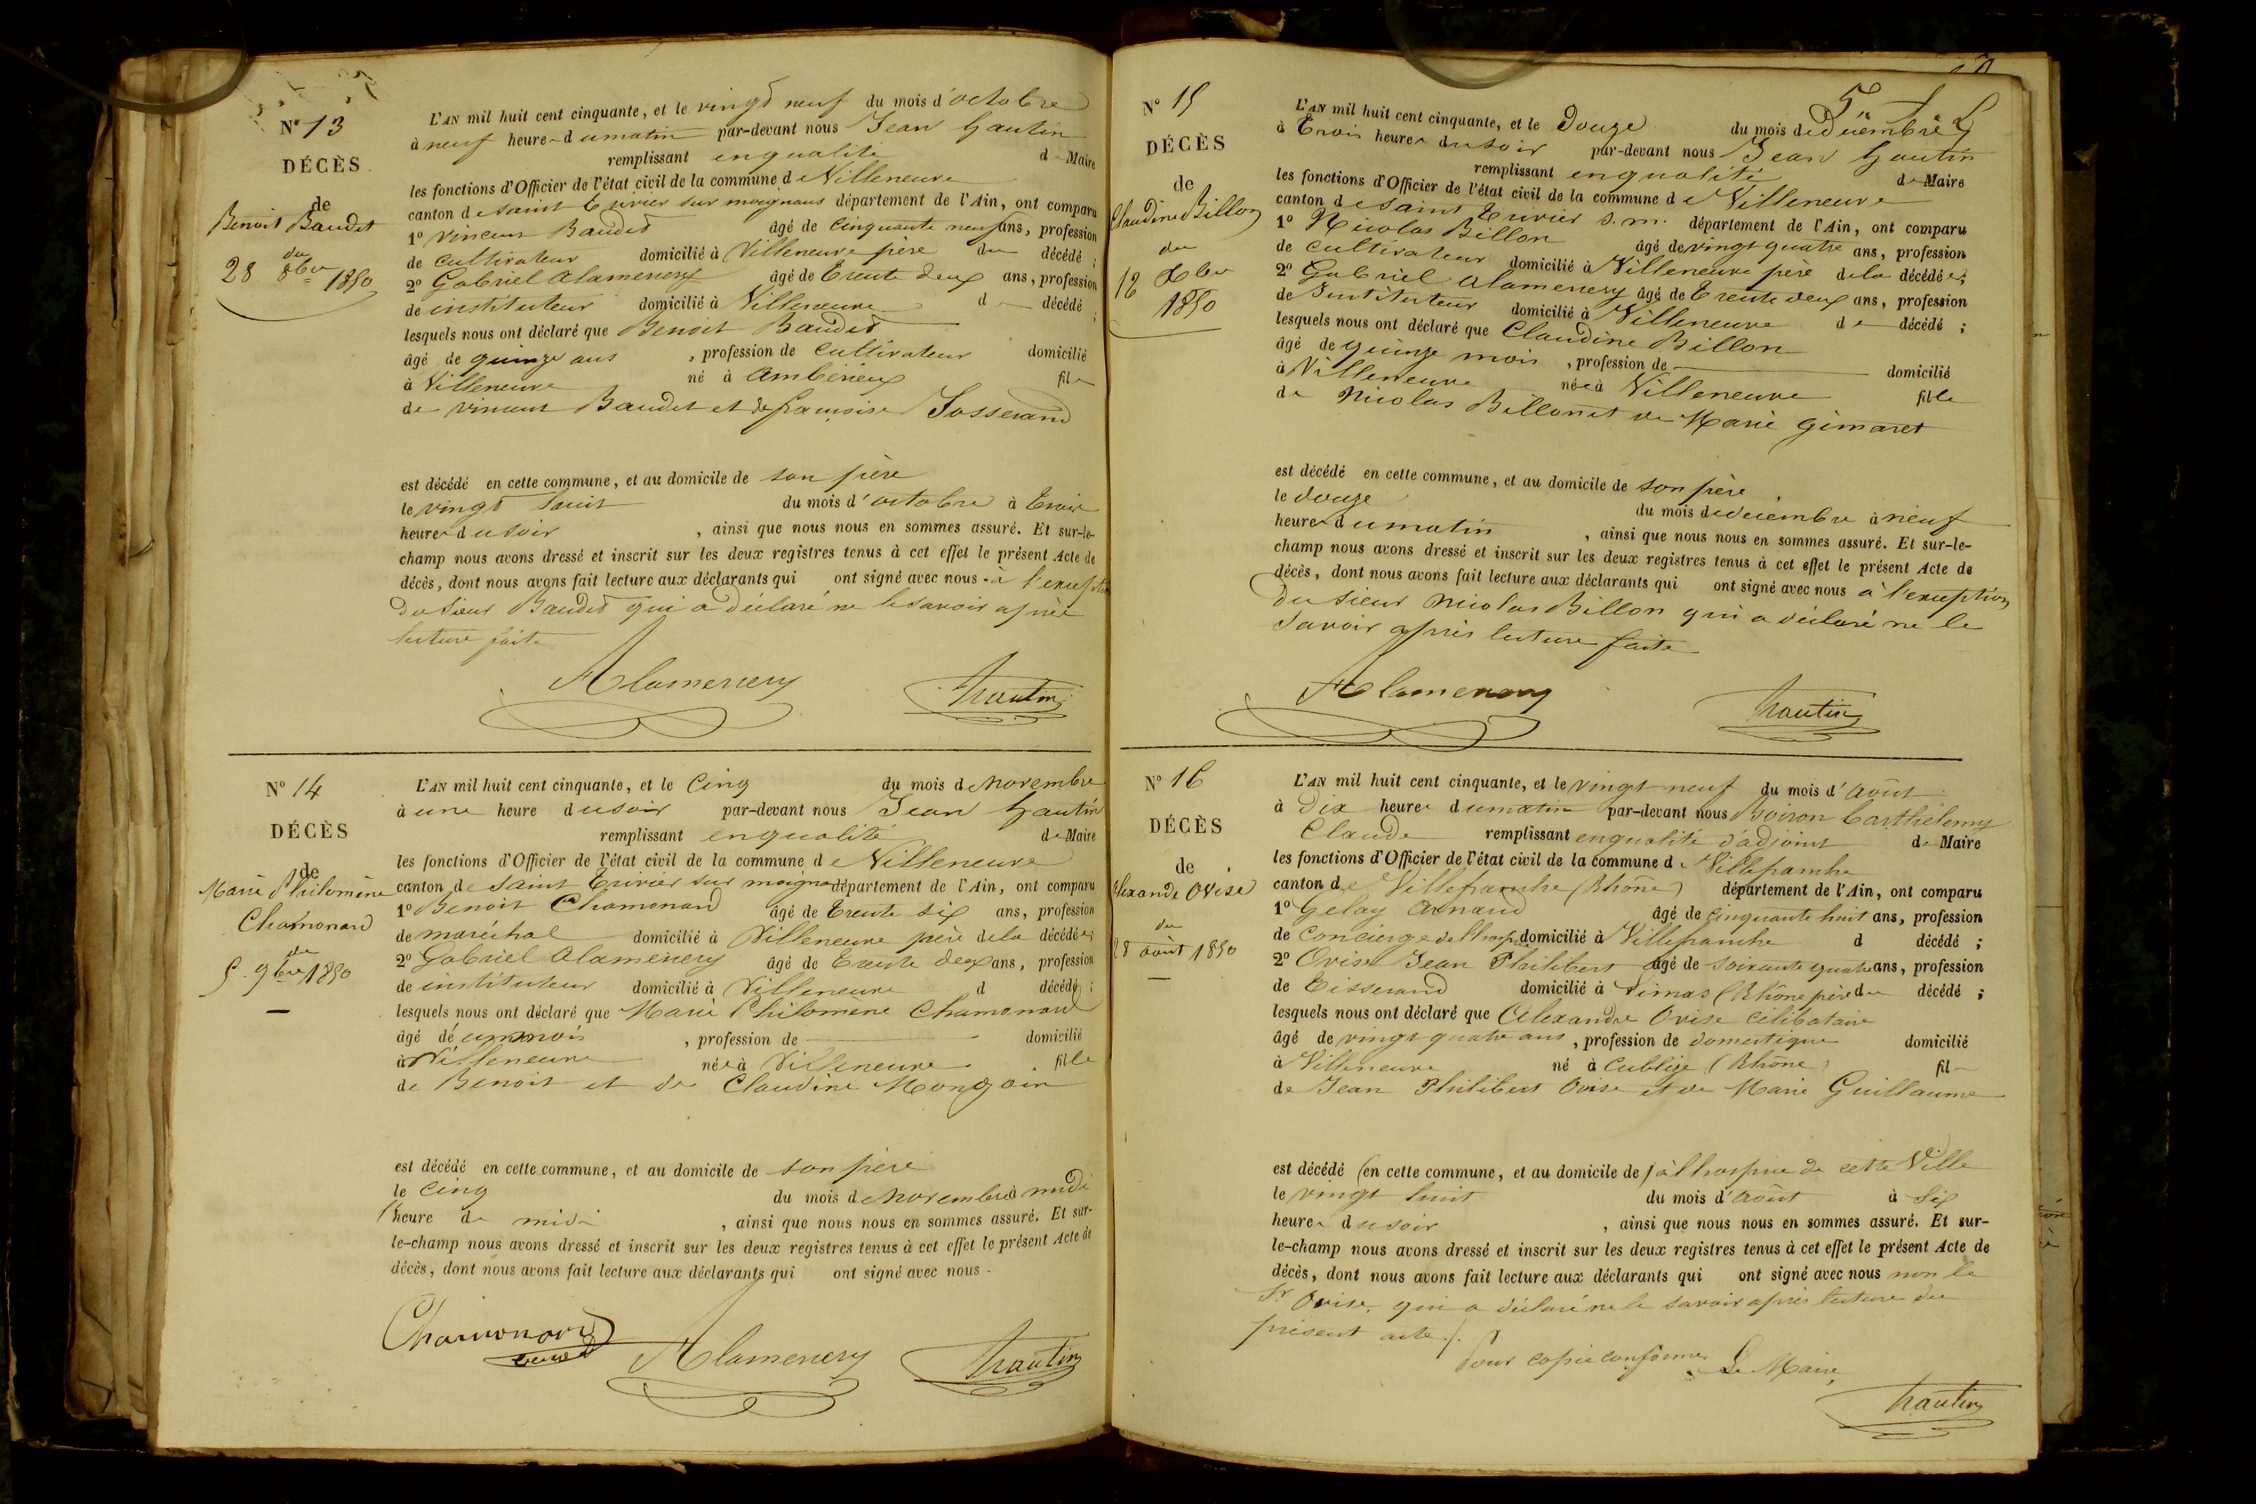 N° 13
DÉCÈS
de
Benoit Baudet
du
28 8bre 1850
L'AN mil huit cent cinquante, et le vingt neuf du mois d'octobre
à neuf heures du matin par-devant nous Jean Gautin
remplissant en qualité de Maire
les fonctions d'Officier de l'état civil de la commune de Villeneuve
canton de saint trivier sur moignans département de l'Ain, ont comparu
1° vincent Baudet âgé de cinquante neuf ans, profession
de cultivateur domicilié à Villeneuve père du décédé ;
2° Gabriel alamercery âgé de trente deux ans, profession
de instituteur domicilié à Villeneuve d décédé ;
lesquels nous ont déclaré que Benoit Baudet
âgé de quinze ans , profession de cultivateur domicilié
à Villeneuve né à ambérieux fils
de vincent Baudet et de françoise Josserand
est décédé en cette commune, et au domicile de son père
le vingt huit du mois d'octobre à trois
heures du soir , ainsi que nous nous en sommes assuré. Et sur-le-
champ nous avons dressé et inscrit sur les deux registres tenus à cet effet le présent Acte de
décès, dont nous avons fait lecture aux déclarants qui ont signé avec nous - à l'exception
du sieur Baudet qui a déclaré ne le savoir après
lecture faite
Alamercery
Gautin
N° 14
DÉCÈS
de
Marie Philomène
Chamonard
du
5 9bre 1850
L'AN mil huit cent cinquante, et le cinq du mois de novembre
à une heure du soir par-devant nous Jean Gautin
remplissant en qualité de Maire
les fonctions d'Officier de l'état civil de la commune de Villeneuve
canton de saint trivier sur moignans département de l'Ain, ont comparu
1° Benoit Chamonard âgé de trente six ans, profession
de maréchal domicilié à Villeneuve père de la décédée ;
2° Gabriel alamercery âgé de trente deux ans, profession
de instituteur domicilié à Villeneuve d décédé ;
lesquels nous ont déclaré que Marie Philomène Chamonard
âgé de un mois , profession de domicilié
à Villeneuve née à Villeneuve fille
de Benoit et de Claudine Mongoin
est décédé en cette commune, et au domicile de son père
le cinq du mois de novembre à midi
heure de midi , ainsi que nous nous en sommes assuré. Et sur-
le-champ nous avons dressé et inscrit sur les deux registres tenus à cet effet le présent Acte de
décès, dont nous avons fait lecture aux déclarants qui ont signé avec nous -
Chamonard
Alamercery
Gautin
N° 15
DÉCÈS
de
Claudine Billon
du
12 Xbre
1850
L'AN mil huit cent cinquante, et le Douze du mois de décembre
à trois heures du soir par-devant nous Jean Gautin
remplissant en qualité de Maire
les fonctions d'Officier de l'état civil de la commune de Villeneuve
canton de saint trivier s. m. département de l'Ain, ont comparu
1° Nicolas Billon âgé de vingt quatre ans, profession
de cultivateur domicilié à Villeneuve père de la décédée ;
2° Gabriel alamercery âgé de trente deux ans, profession
de Instituteur domicilié à Villeneuve de décédé ;
lesquels nous ont déclaré que Claudine Billon
âgé de quinze mois , profession de domicilié
à Villeneuve née à Villeneuve fille
de Nicolas Billon et de Marie gimaret
est décédé en cette commune, et au domicile de son père
le douze du mois de décembre à neuf
heures du matin , ainsi que nous nous en sommes assuré. Et sur-le-
champ nous avons dressé et inscrit sur les deux registres tenus à cet effet le présent Acte de
décès, dont nous avons fait lecture aux déclarants qui ont signé avec nous à l'exception
du sieur Nicolas Billon qui a déclaré ne le
savoir après lecture faite
Alamercery
Gautin
N° 16
DÉCÈS
de
Alexandre Ovise
du
28 août 1850
L'AN mil huit cent cinquante, et le vingt neuf du mois d'août
à Dix heures du matin par-devant nous Boiron Barthélemy
Claude remplissant en qualité d'adjoint de Maire
les fonctions d'Officier de l'état civil de la commune de Villefranche
canton de Villefranche (Rhône) département de l'Ain, ont comparu
1° Gelay Arnaud âgé de cinquante huit ans, profession
de Concierge de l'hospice domicilié à Villefranche d décédé ;
2° Ovise Jean Philibert âgé de soixante quatre ans, profession
de Tisserand domicilié à Limas (Rhône père du décédé ;
lesquels nous ont déclaré que Alexandre Ovise célibataire
âgé de vingt quatre ans , profession de domestique domicilié
à Villeneuve né à Cublize (Rhône) fils
de Jean Philibert Ovise et de Marie Guillaume
est décédé (en cette commune, et au domicile de) à l'hospice de cette Ville
le vingt huit du mois d'août à six
heures du soir , ainsi que nous nous en sommes assuré. Et sur-
le-champ nous avons dressé et inscrit sur les deux registres tenus à cet effet le présent Acte de
décès, dont nous avons fait lecture aux déclarants qui ont signé avec nous non le
Sr Ovise, qui a déclaré ne le savoir après lecture du
présent acte ./.
Pour copie conforme Le Maire,
Gautin